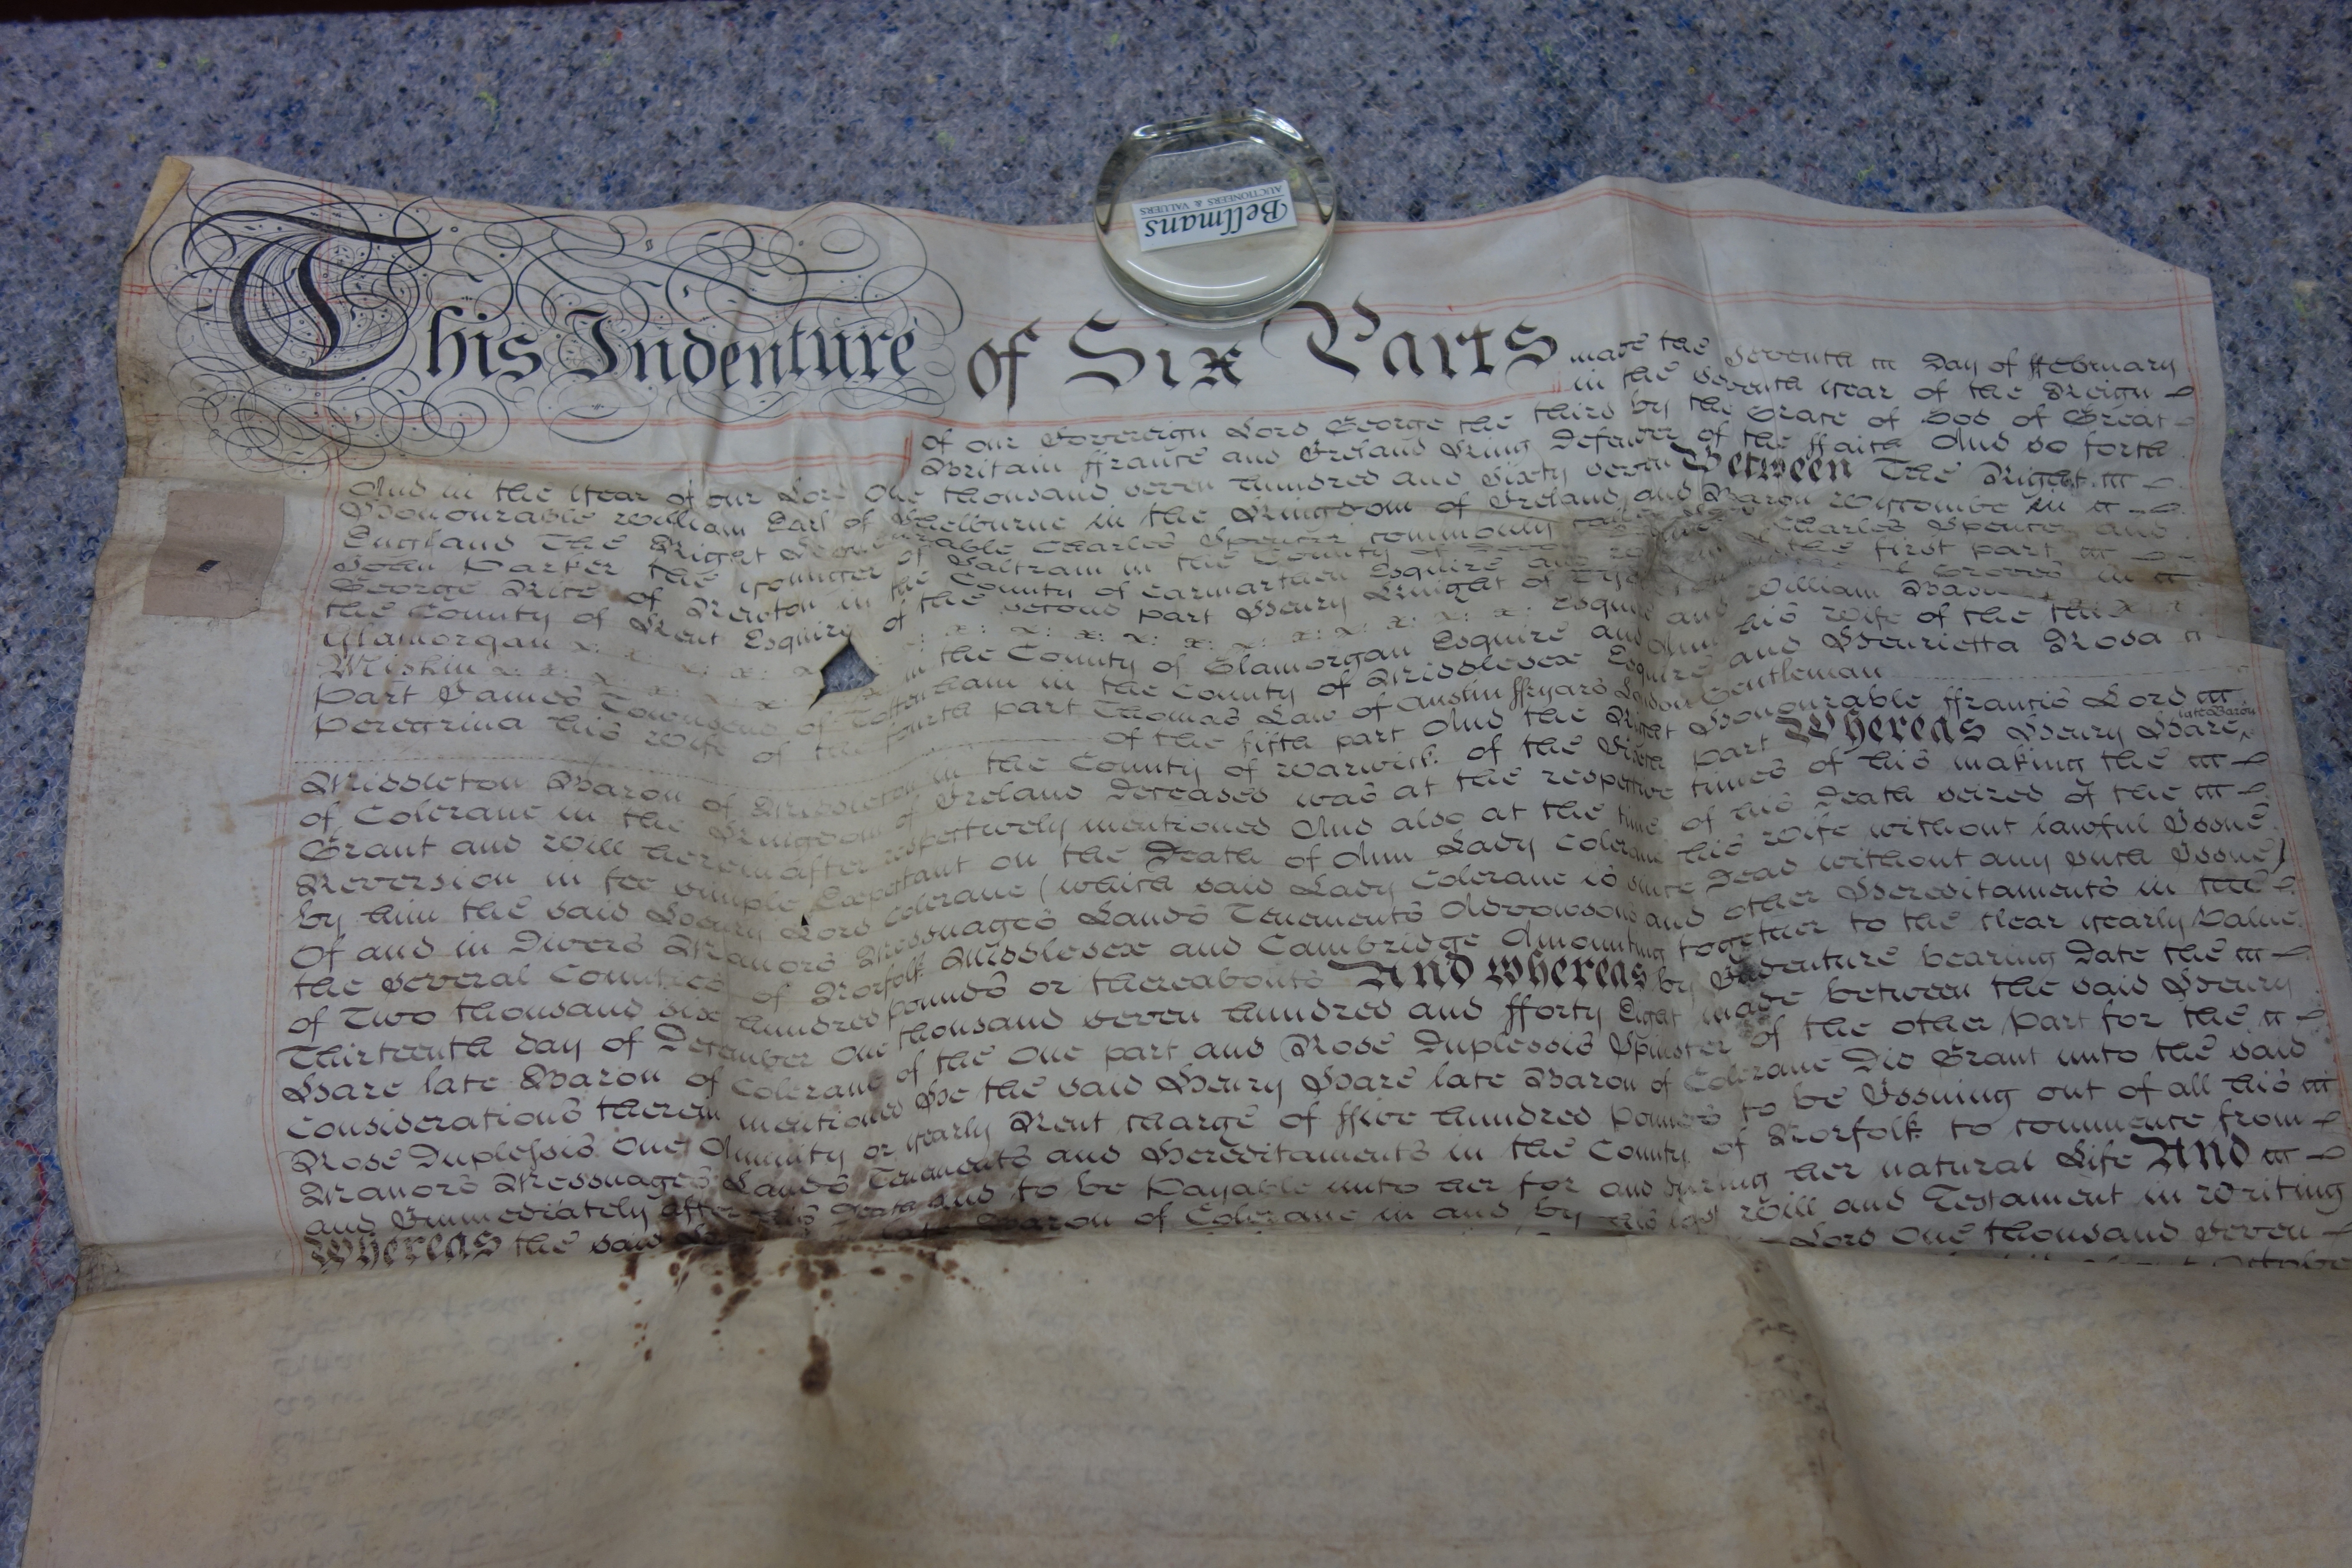 Bellmans
AUCTIONEERS & VALUERS
This Indenture of Six Parts made the Seventh Day of ffebruary
in the Seventh Year of the Reign
of our Sovereign Lord George the third by the Grace of God of Great
Britain ffrance and Ireland King Defender of the ffaith And so forth
And in the Year of our Lord One thousand seven hundred and Sixty seven Between The Right
Honourable William Earl of Shelburne in the Kingdom of Ireland and Baron Wycombe in
England The Right Honourable Charles Spencer commonly called Lord Charles Spencer and
John Parker the younger of Saltram in the County of Devon Esquire of the first part
George Rice of Newton in the County of Carmarthen Esquire and William
the County of Kent Esquire of the second part Henry Knight of
Glamorgan Esquire and William
Miskin in the County of Glamorgan Esquire and Ann his Wife of the third
part James Townsend of Tottenham in the County of Middlesex Esquire and Henrietta Rosa
Peregrina his Wife of the fourth part Thomas Law of Austin ffryars London Gentleman
of the fifth part And the Right Honourable ffrancis Lord
Middleton Baron of Middleton in the County of Warwick of the Sixth part Whereas Henry Hare late Baron
of Colerane in the Kingdom of Ireland Deceased was at the respective times of his making the
Grant and Will herein after respectively mentioned And also at the time of his Death seized of the
Reversion in fee simple Expectant on the Death of Ann Lady Colerane his Wife without lawful Issue
by him the said Henry Lord Colerane (which said Lady Colerane is since Dead without any such Issue)
Of and in Divers Manors Messuages Lands Tenements Advowsons and other Hereditaments in the
the Several Counties of Norfolk Middlesex and Cambridge Amounting together to the clear yearly Value
of Two thousand six hundred pounds or thereabouts And whereas by Indenture bearing Date the
Thirteenth day of December One thousand seven hundred and fforty Eight made between the said Henry
Hare late Baron of Colerane of the One part and Rose Duplessis Spinster of the other part for the
Considerations therein mentioned He the said Henry Hare late Baron of Colerane Did Grant unto the said
Rose Duplessis One Annuity or yearly Rent charge of ffive hundred Pounds to be Issuing out of all his
Manors Messuages Lands Tenements and Hereditaments in the County of Norfolk to commence from
and Immediately after his Death and to be Payable unto her for and during her natural Life And
Whereas the said Baron of Colerane in and by his last Will and Testament in Writing
Lord One thousand Seven